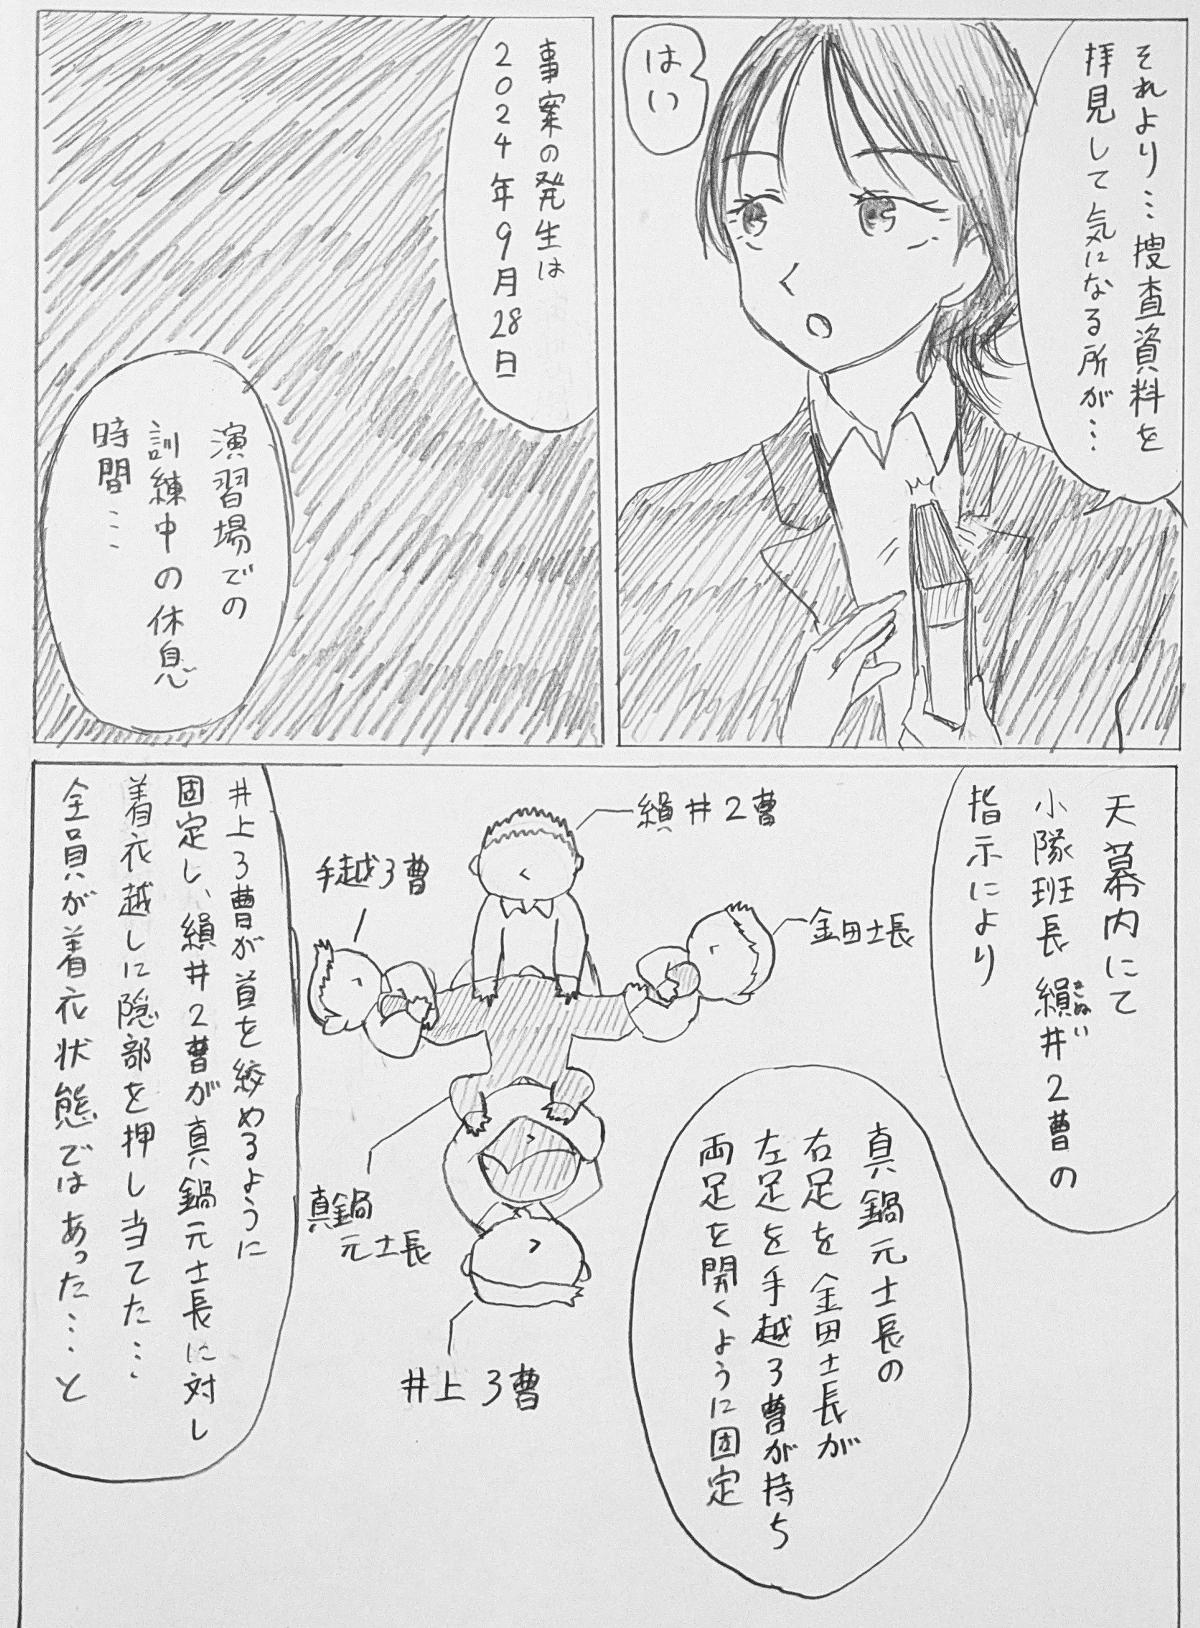 それより…捜査資料を
拝見して気になる所が…
はい
事案の発生は
2024年9月28日
演習場での
訓練中の休息
時間…
天幕内にて
小隊班長 縜井2曹の
きぬい
指示により
真鍋元士長の
右足を金田士長が
左足を手越3曹が持ち
両足を開くように固定
縜井2曹
手越3曹
金田士長
真鍋
元士長
井上3曹
井上3曹が首を絞めるように
固定し、縜井2曹が真鍋元士長に対し
着衣越しに陰部を押し当てた…
全員が着衣状態ではあった…と